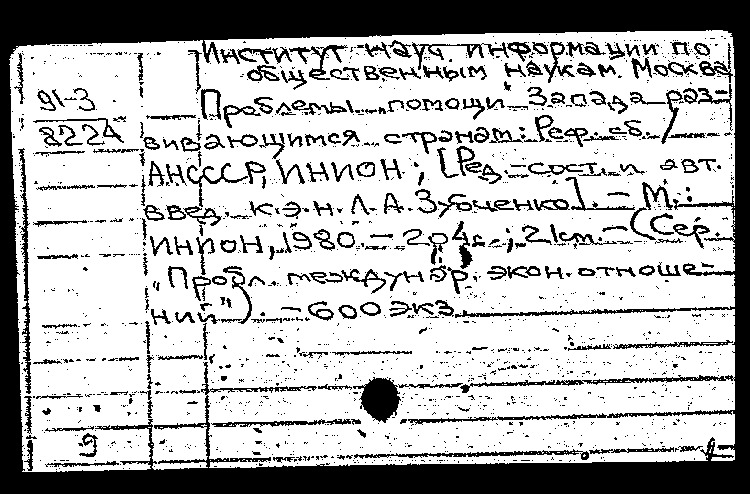 Институт науч. информации по
общественным наукам. Москва
91-3
8224
Проблемы „помощи" Запада раз-
вивающимся странам: Реф. сб. /
АН СССР, ИНИОН; [Ред.-сост. и авт.
введ. к.э.н. Л.А. Зубченко]. - М.:
ИНИОН, 1980. - 204 с.; 21 см. - (Сер.
„Пробл. междунар. экон. отноше-
ний"). - 600 экз.
9